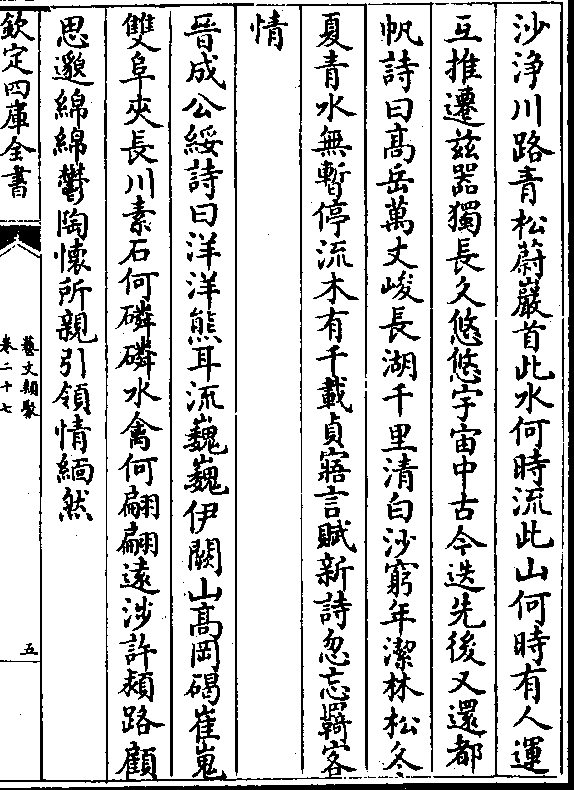 沙浄川路青松蔚巖首此水何時流此山何時有人運
互推遷兹器獨長久悠悠宇宙中古今迭先後又還都
帆詩曰髙岳萬丈峻長湖千里清白沙窮年潔林松冬
夏青水無暫停流木有千載貞寤言賦新詩忽忘羇客
情
晉成公綏詩曰洋洋熊耳流巍巍伊闕山髙岡碣崔嵬
雙阜夾長川素石何磷磷水禽何翩翩逺涉許潁路顧
思邈綿綿鬱陶懷所親引領情緬然
欽定四庫全書
藝文類聚
卷二十七
五